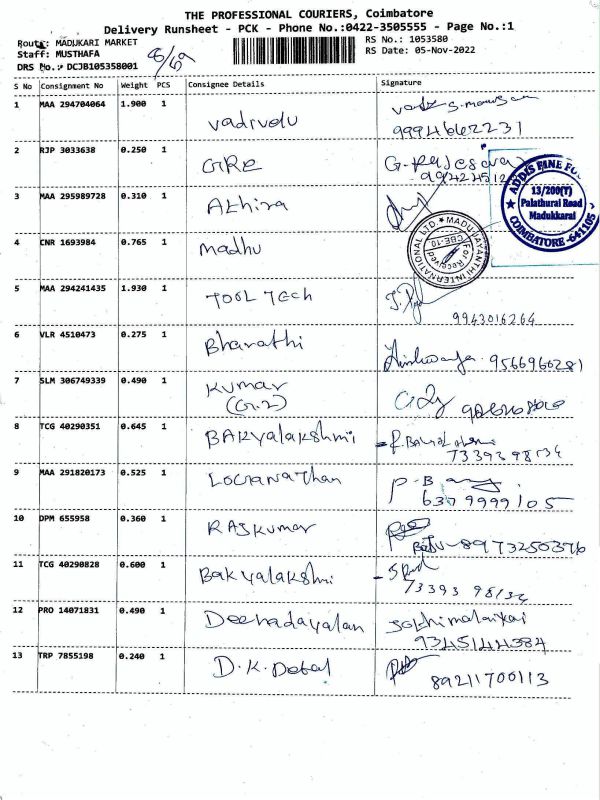 THE PROFESSIONAL COURIERS, Coimbatore
Delivery Runsheet - PCK - Phone No.:0422-3505555 - Page No.:1
Route: MADUKARI MARKET
RS No.: 1053580
Staff: MUSTHAFA
RS Date: 05-Nov-2022
DRS No.: DCJB105358001
S No Consignment No Weight PCS Consignee Details Signature
1 MAA 294704064 1.900 1 Vadivelu
9994662231
2 RJP 3033638 0.250 1 GRE G.Rajeswa
3 MAA 295989728 0.310 1 Athira
ADDIS FINE
13/200(T)
Palathurai Road
Madukkarai
COIMBATORE -641105
4 CNR 1693984 0.765 1 Madhu
MADUTAYANTHI INTERNATIONAL LTD.
CBE-10
For Received
5 MAA 294241435 1.930 1 TOOL Tech
9943016264
6 VLR 4510473 0.275 1 Bharathi
9566966281
7 SLM 306749339 0.490 1 Kumar
(G.2)
8 TCG 40290351 0.645 1 BAKyalakshmi
73393 98134
9 MAA 291820173 0.525 1 Loganathan P-B
6379999105
10 DPM 655958 0.360 1 RAJKumar
8973250376
11 TCG 40290828 0.600 1 Bakyalakshmi
73393 98134
12 PRO 14071831 0.490 1 Deenadayalan
9345144384
13 TRP 7855198 0.240 1 D.K.Debal
89211700113